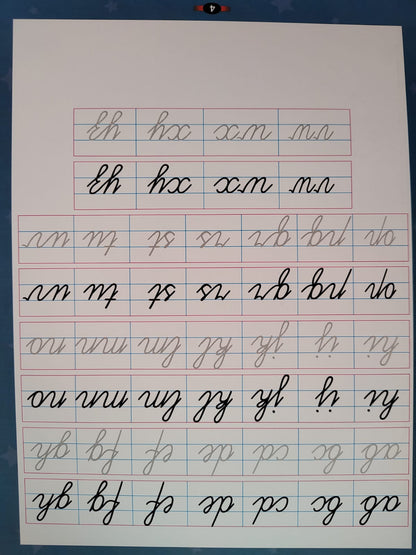 ab bc cd de ef fg gh
ab bc cd de ef fg gh
hi ij jk kl lm mn no
hi ij jk kl lm mn no
op pq qr rs st tu uv
op pq qr rs st tu uv
vw wx xy yz
vw wx xy yz
4